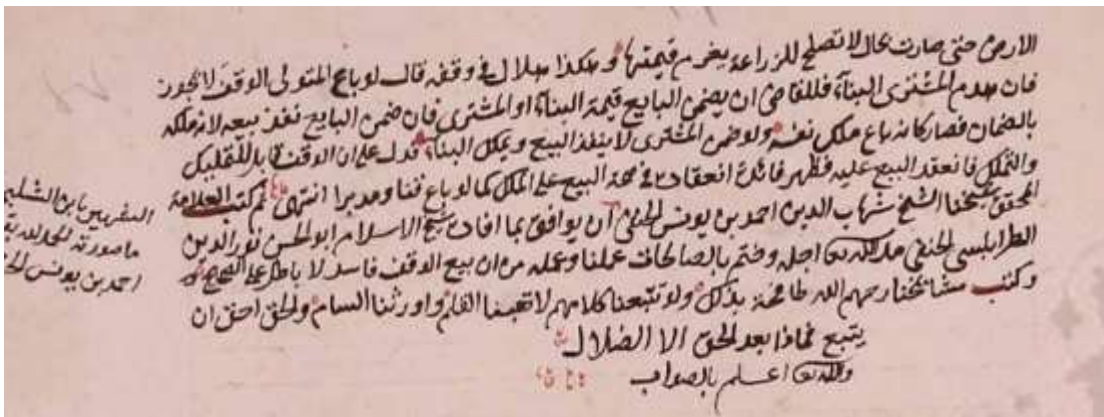 الارض حتى صارت بحال لا تصلح للزراعة يغرم قيمتها وهكذا هلال في وقفه قال لو باع المتولى الوقف لا يجوز
فان هدم المشترى البناء فللقاضى ان يضمن البايع قيمة البناء او المشترى فان ضمن البايع نفذ بيعه لانه ملكه
بالضمان فصار كانه باع ملك نفسه ولو ضمن المشترى لا ينفذ البيع ويملك البناء فدل على ان الوقف قابل للتمليك
والتملك فانعقد البيع عليه فظهر فائدة انعقاده في صحة البيع على الملك كما لو باع قنا ومدبرا انتهى ثم كتب العلامة
المحقق شيخنا الشيخ شهاب الدين احمد بن يونس الحنفى ان يوافق بما افاده شيخ الاسلام ابو الحسن نور الدين
الطرابلسى الحنفى مد الله تعا اجله وختم بالصالحات عملنا وعمله من ان بيع الوقف فاسد لا باطل على الصحيح
وكتب مشائخنا رحمهم الله طافحة بذلك ولو تتبعنا كلامهم لاتعبنا القلم واورثنا السام والحق احق ان
يتبع فماذا بعد الحق الا الضلال
والله تعا اعلم بالصواب
الشهير بابن الشلبى
ما صورته الحمد لله
احمد بن يونس